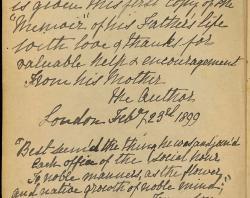 is given this first copy of the
"Memoir" of his Father's life
with love & thanks for
valuable help & encouragement
From his Mother
the Author
London Feby 23rd 1899
"Best seem'd the thing he was, and join'd
Each office of the social hour
To noble manners, as the flower
And native growth of noble mind;"